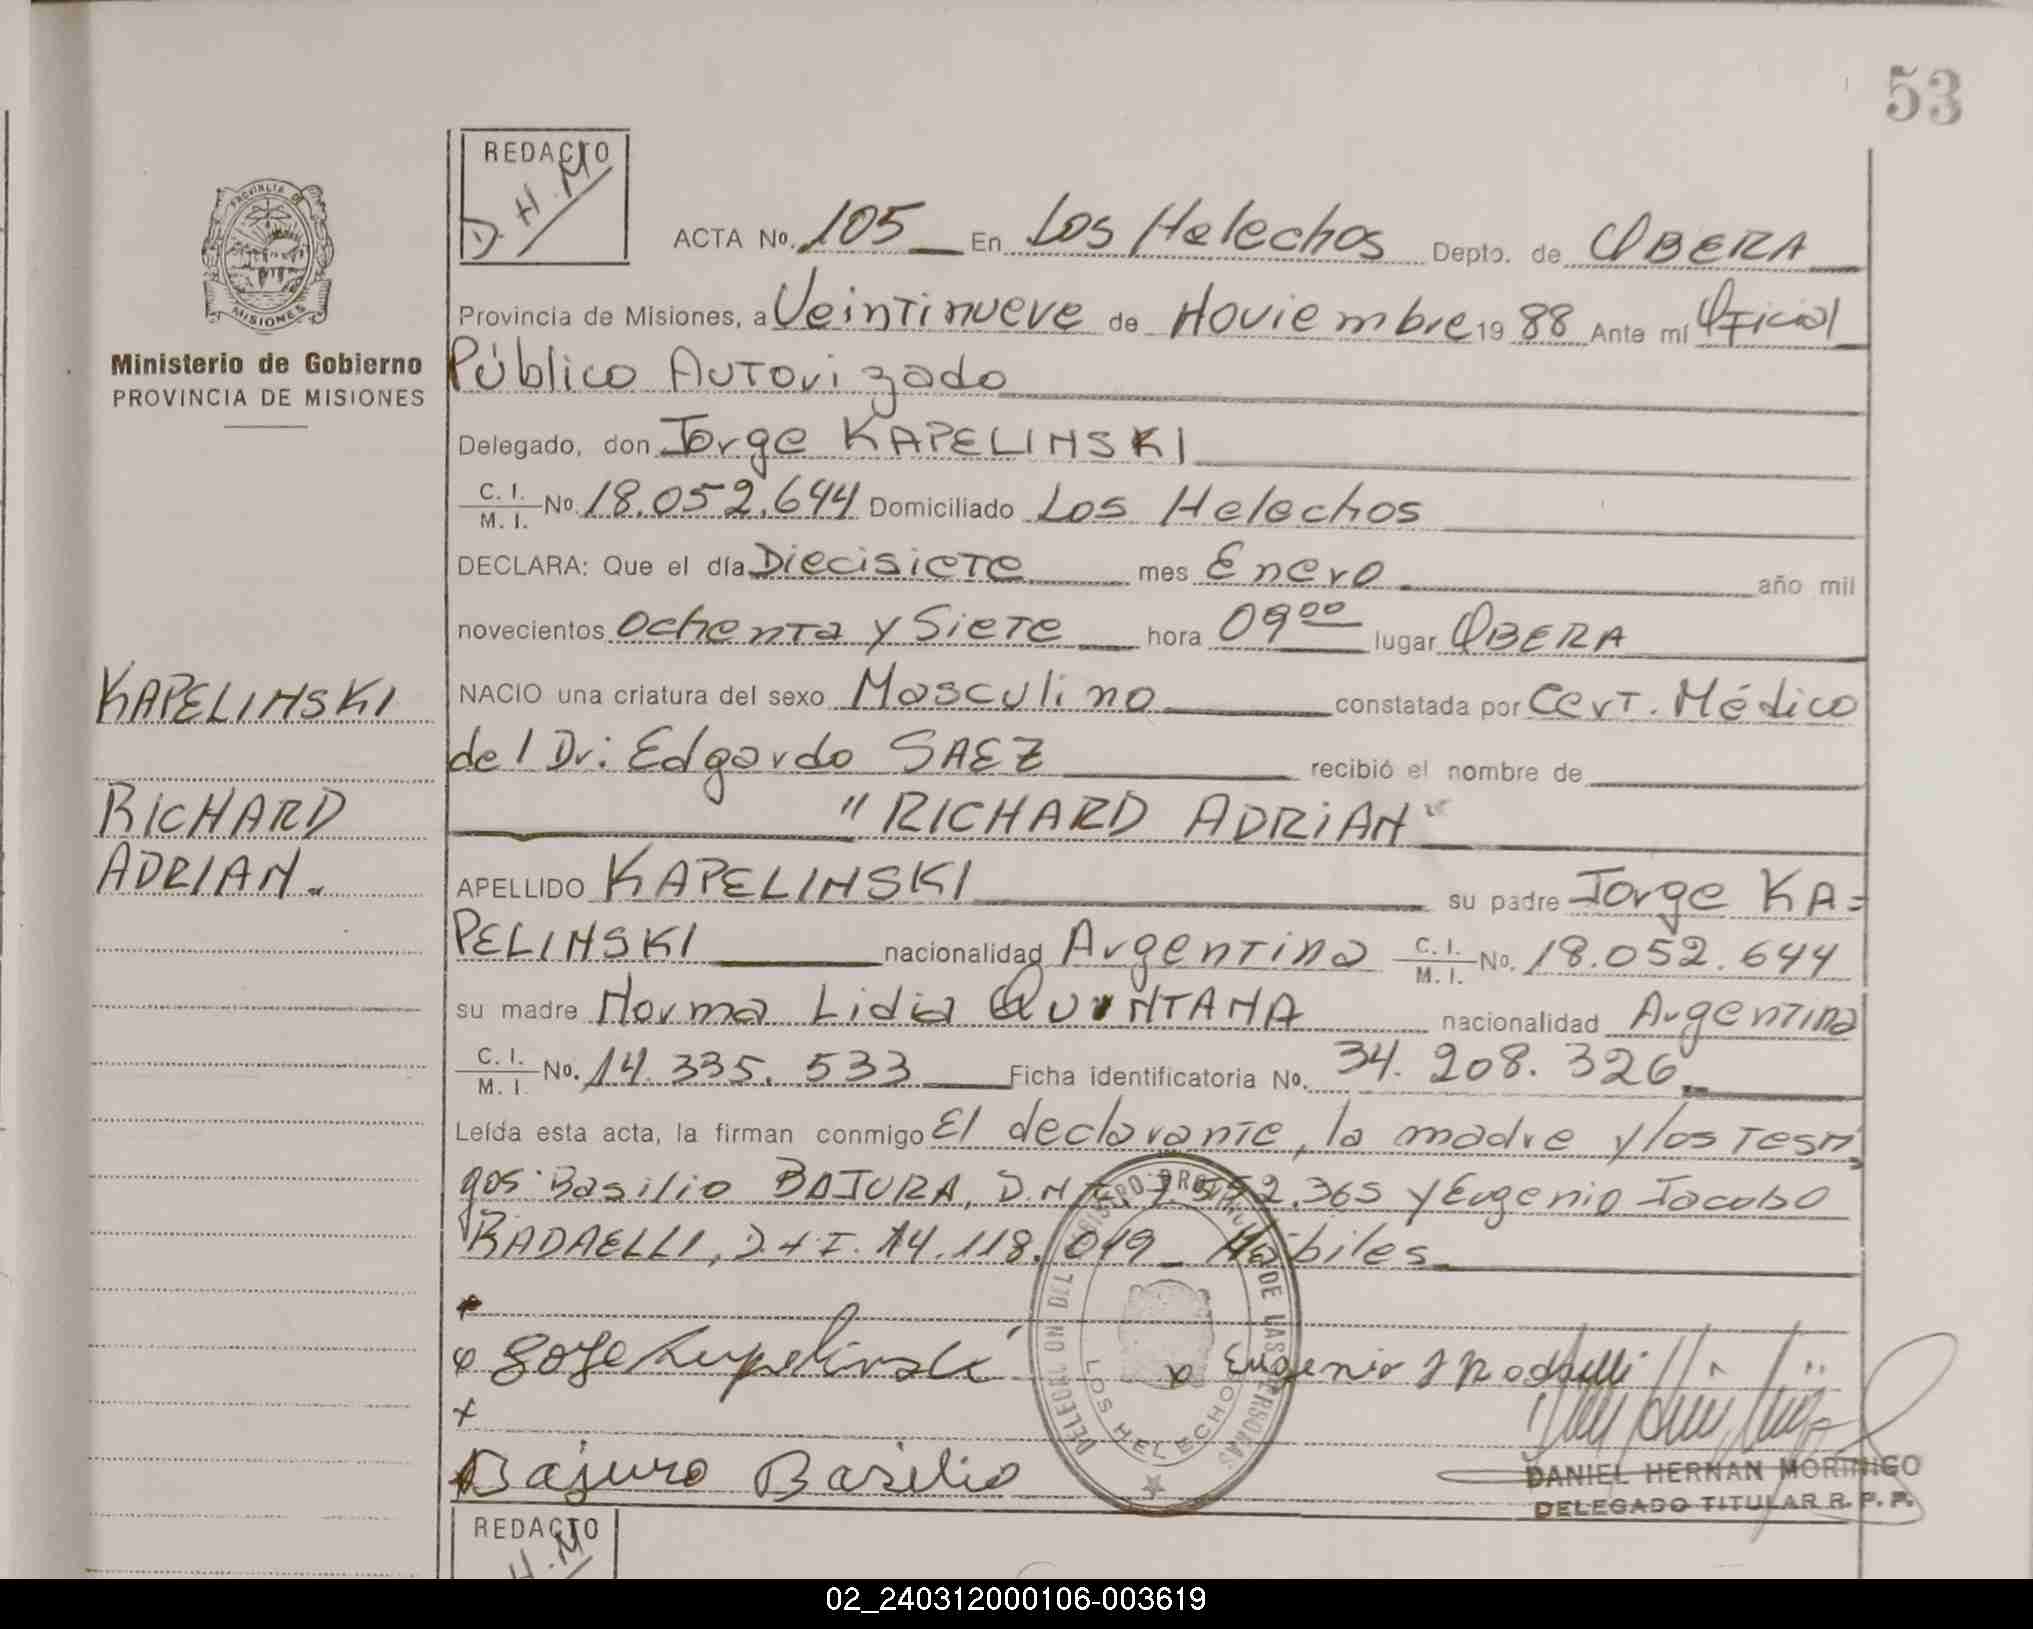 53
REDACTO
D.H.M
PROVINCIA DE
MISIONES
Ministerio de Gobierno
PROVINCIA DE MISIONES
ACTA No. 105 En Los Helechos Depto. de OBERA
Provincia de Misiones, a Veintinueve de Noviembre 19 88 Ante mí Oficial
Público Autorizado
Delegado, don Jorge KAPELINSKI
C. I. / M. I. No. 18.052.644 Domiciliado Los Helechos
DECLARA: Que el día Diecisiete mes Enero año mil
novecientos ochenta y Siete hora 09 00 lugar OBERA
KAPELINSKI
NACIO una criatura del sexo Masculino constatada por Cert. Médico
del Dr: Edgardo SAEZ recibió el nombre de
RICHARD
"RICHARD ADRIAN"
ADRIAN.
APELLIDO KAPELINSKI su padre Jorge KA=
PELINSKI nacionalidad Argentina C. I. / M. I. No. 18.052.644
su madre Norma Lidia QUINTANA nacionalidad Argentina
C. I. / M. I. No. 14.335.533 Ficha identificatoria No. 34.208.326
Leída esta acta, la firman conmigo El declarante, la madre y los testi
gos: Basilio BAJURA, D.N.I. 365 y Eugenio Jacobo
RADAELLI, D.N.I. 14.118.019 Hábiles
Jorge Kapelinski
x Eugenio J Radaelli
x
Bajura Basilio
DELEGACION DEL REGISTRO PROVINCIAL DE LAS PERSONAS
LOS HELECHOS
DANIEL HERNAN MORINIGO
DELEGADO TITULAR R. P. P.
REDACTO
H.M
02_240312000106-003619